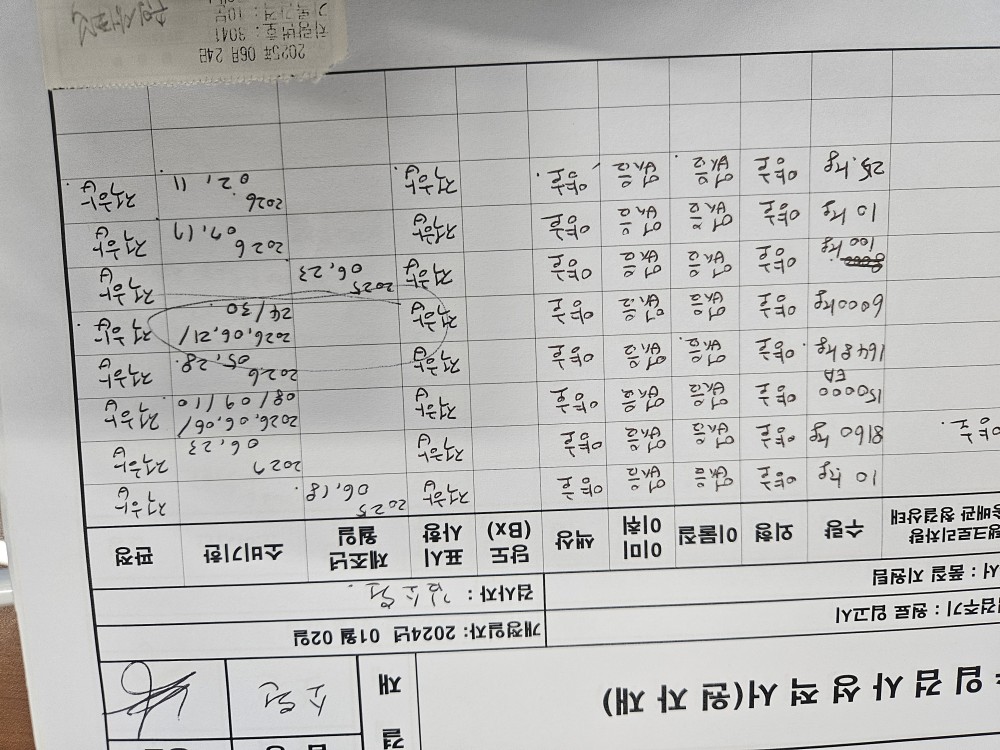 입 검 사 성 적 서(원 자 재)
결
재
소원
검주기 : 원료 입고시
개정일자: 2024년 01월 02일
서 : 품질 지원팀
검사자 : 김소원
탱크로리차량 송배관 청결상태
수량
외형
이물질
이미 이취
색상
당도 (Bx)
표시 사항
제조년 월일
소비기한
판정
10 kg 양호 없음 없음 양호 적합 2025 06,18 적합
양호. 8160 kg 양호 없음 없음 양호 적합 2027 06,23 적합
150000 EA 양호 없음 없음 양호 적합 2026,06,06/ 08/09/10 적합
1648 kg 양호 없음 없음 양호 적합 2026 05,28. 적합
6000kg 양호 없음 없음 양호 적합 2026,06,21/ 24/30 적합
100 kg 양호 없음 없음 양호 적합 2025 06,23 적합
10 kg 양호 없음 없음 양호 적합 2026 적합
25. kg 양호 없음 없음 양호 적합 2026. 02,11 적합
2025年 06月 24日
차량번호 : 3041
기록간격 : 10분